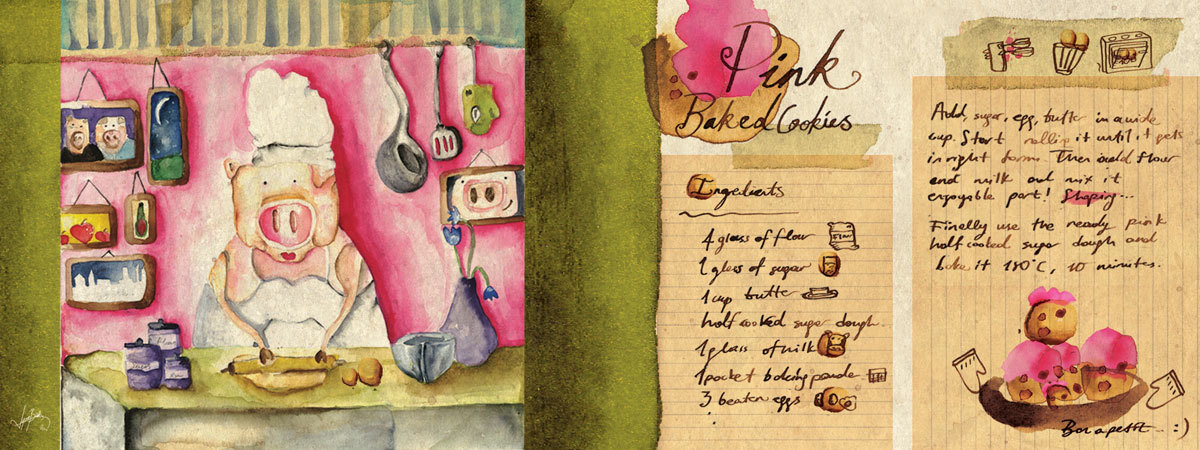 Pink
Baked Cookies
Ingredients
4 glass of flour
1 glass of sugar
1 cup butter
half cooked sugar dough
1 glass of milk
1 pocket baking powde
3 beaten eggs
Add, sugar, egg, butter in a wide
cup. Start rolling it until it gets
in right form. Then add flour
and milk and mix it
enjoyable part! Shaping...
Finelly use the ready pink
half cooked sugar dough and
bake it 180°C, 10 minutes.
Bon apetit... :)